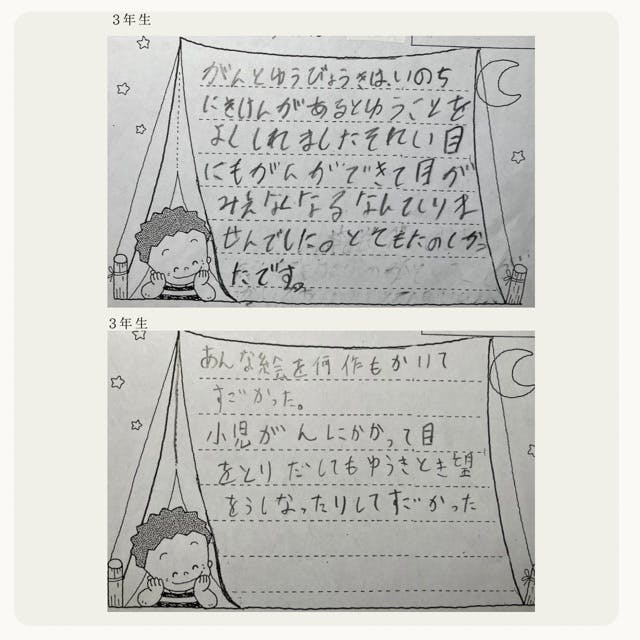 3年生
がんとゆうびょうきは、いのち
にきけんがあるとゆうことを
よししれましたそれい目
にもがんができて目が
みえなくなるなんてしりま
せんでした。とてもたのしかっ
たです。
3年生
あんな絵を何作もかいて
すごかった。
小児がんにかかって目
をとりだしてもゆうきとき望
をうしなったりしてすごかった